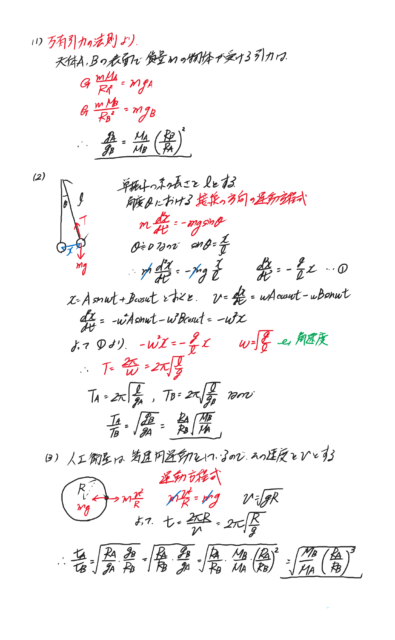 (1) 万有引力の法則より.
天体A, Bの表面で質量mの物体が受ける引力は
G mM_A/R_A² = mg_A
G mM_B/R_B² = mg_B
∴ g_A/g_B = M_A/M_B (R_B/R_A)²
(2)
単振り子の糸の長さを l とする
角度θにおける接線の方向の運動方程式
θ l T x mg
m d²x/dt² = -mg sinθ
θ≒0 なので sinθ = x/l
∴ m d²x/dt² = -mg x/l d²x/dt² = -g/l x … ①
x = A sinωt + B cosωt とおくと、 v = dx/dt = ωA cosωt - ωB sinωt
d²x/dt² = -ω²A sinωt - ω²B cosωt = -ω²x
よって ①より. -ω²x = -g/l x ω = √(g/l) 角速度
∴ T = 2π/ω = 2π√(l/g)
T_A = 2π√(l/g_A) , T_B = 2π√(l/g_B) なので
T_A/T_B = √(g_B/g_A) = R_A/R_B √(M_B/M_A)
(3) 人工衛星は等速円運動をしているので、その速度を v とする
運動方程式
R mg m v²/R m v²/R = mg v = √(gR)
よって t = 2πR/v = 2π√(R/g)
∴ t_A/t_B = √(R_A/g_A · g_B/R_B) = √(R_A/R_B · g_B/g_A) = √(R_A/R_B · M_B/M_A · (R_A/R_B)²) = √(M_B/M_A (R_A/R_B)³)